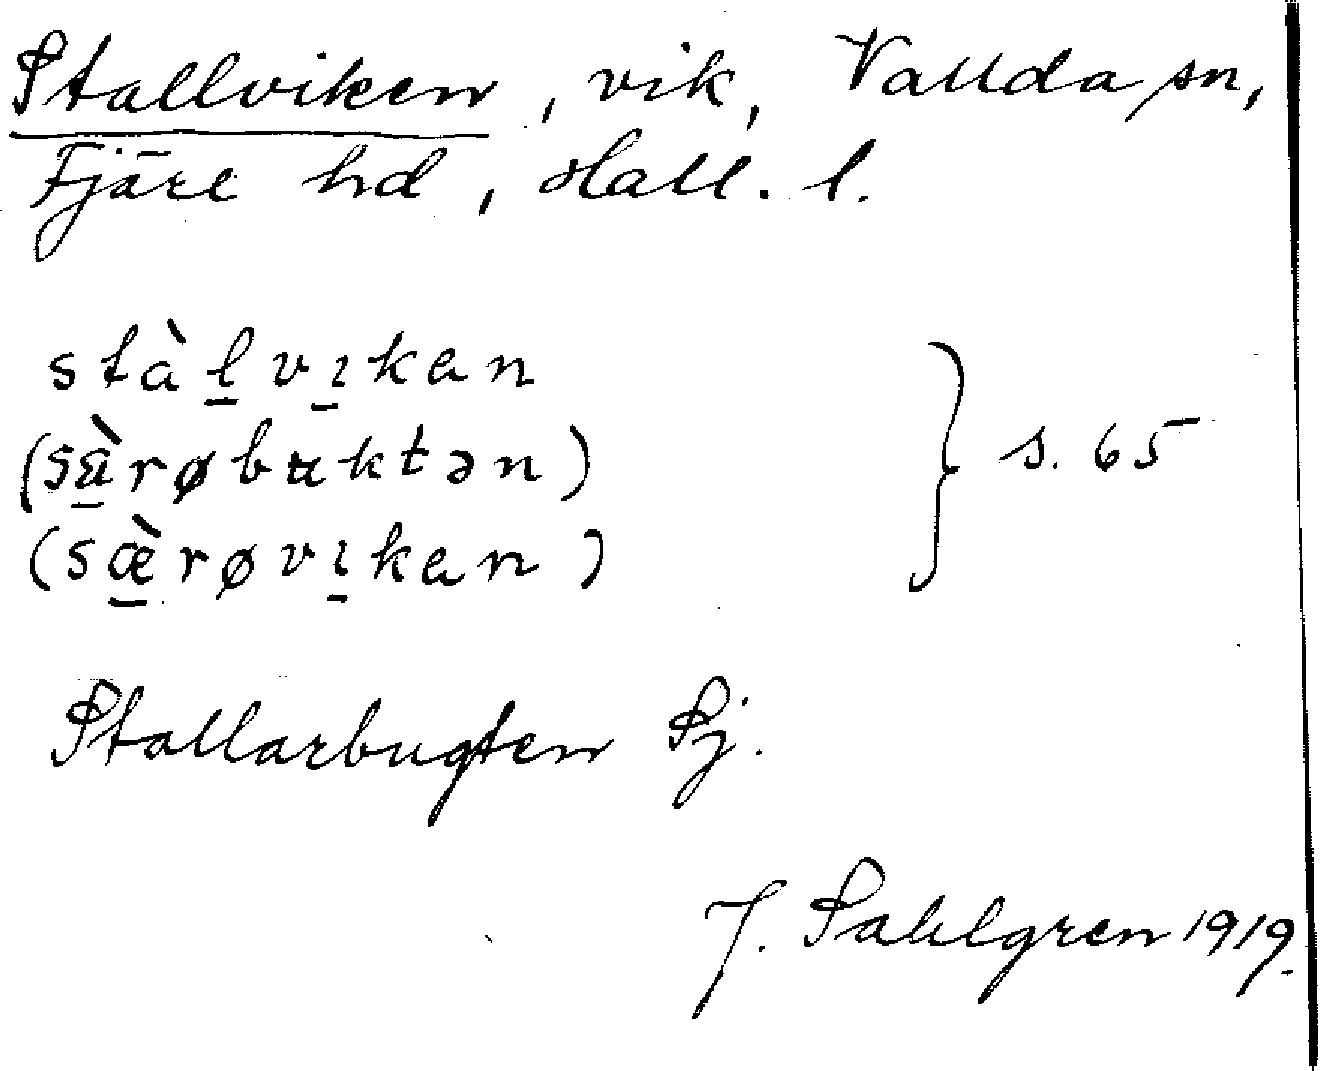 Stallviken, vik, Vallda sn,
Fjäre hd, Hall. l.
stàl̲vı̲kan
(sæ̲̀røbuktən)
(sæ̲̀røvı̲kan)
} s. 65
Stallarbugten Sj.
J. Sahlgren 1919.